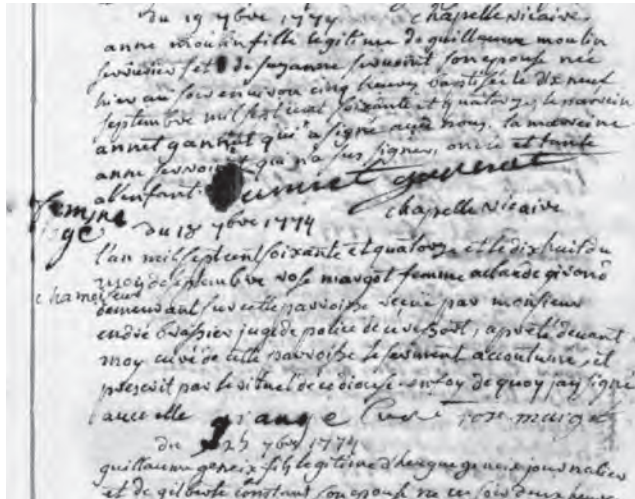 du 19 7bre 1774 chapelle vicaire
anne moulin fille legitime de guillaume moulin
et de suzanne son epouse née
hier au soir environ cinq heures baptisée le dix neuf
septembre mil sept cent soixante et quatorze, le parrein
annet gannat qui a signé avec nous. la marreine
anne qui n'a sus signer, oncle et tante
a l'enfant. annet
chapelle vicaire
du 18 7bre 1774
l'an mil sept cent soixante et quatorze et le dix huit du
moy de septembre rose margot femme a
demeurant sur cette parroisse recüe par monsieur
andré brassier juge de police de , a preté devant
moy curé de cette parroisse le serment accoutumé, et
prescrit par le rituel de ce diocese. en foy de quoy jay signé
avec elle grange Curé rose margot
du 25 7bre 1774
guillaume geneix fils legitime geneix journalier
et de gilberte constant son epouse né